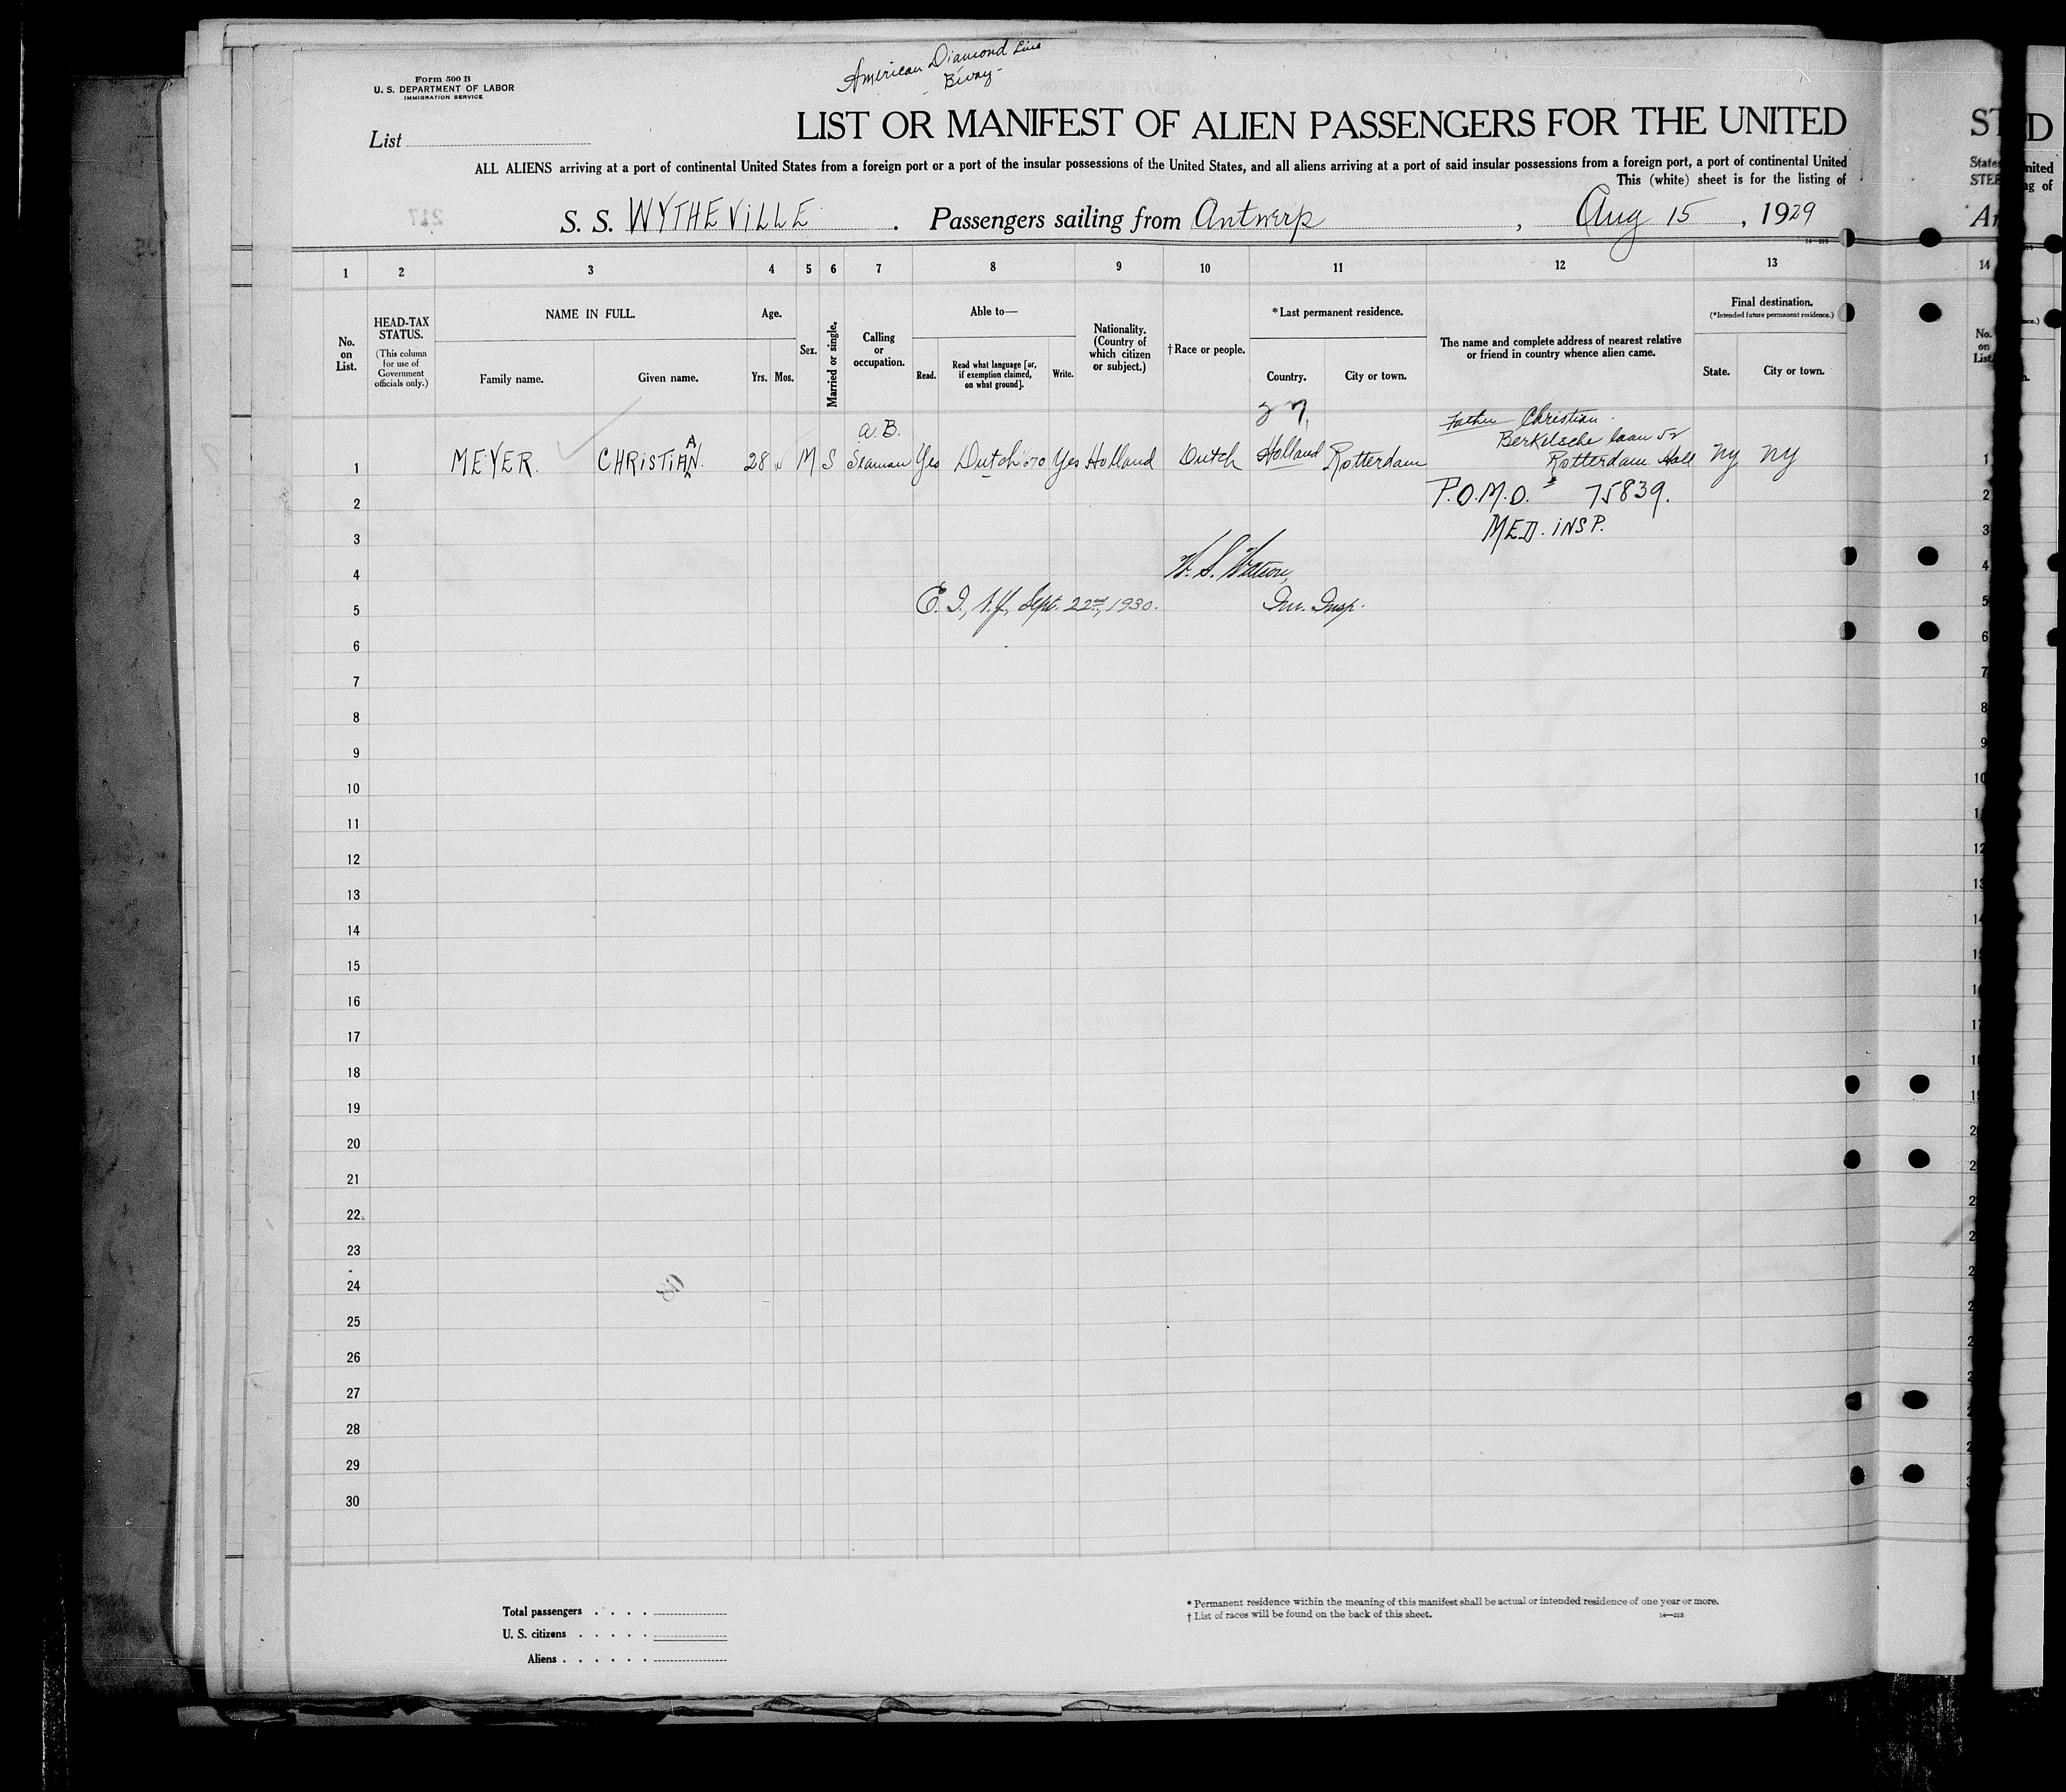 American Diamond Line
Form 500 B
U. S. DEPARTMENT OF LABOR
IMMIGRATION SERVICE
List
LIST OR MANIFEST OF ALIEN PASSENGERS FOR THE UNITED
ALL ALIENS arriving at a port of continental United States from a foreign port or a port of the insular possessions of the United States, and all aliens arriving at a port of said insular possessions from a foreign port, a port of continental United
This (white) sheet is for the listing of
S. S. WYTHEVILLE . Passengers sailing from Antwerp , Aug 15 , 1929
1 2 3 4 5 6 7 8 9 10 11 12 13
No. on List.
HEAD-TAX STATUS.
(This column for use of Government officials only.)
NAME IN FULL.
Family name. Given name.
Age.
Yrs. Mos.
Sex.
Married or single.
Calling or occupation.
Able to—
Read. Read what language [or, if exemption claimed, on what ground]. Write.
Nationality. (Country of which citizen or subject.)
†Race or people.
*Last permanent residence.
Country. City or town.
The name and complete address of nearest relative or friend in country whence alien came.
Final destination.
(*Intended future permanent residence.)
State. City or town.
Father Christian
a. B.
Berkelsche laan 52
1 MEYER. CHRISTIAN. 28 M S Seaman Yes Dutch Yes Holland Dutch Holland Rotterdam Rotterdam Holl NY NY
2 P.O.M.O. 75839.
3 MED. INSP.
4 W. S. Watson,
5 E. I., N.Y., Sept. 22nd, 1930. Im. Insp.
6
7
8
9
10
11
12
13
14
15
16
17
18
19
20
21
22
23
24
25
26
27
28
29
30
Total passengers
U. S. citizens
Aliens
* Permanent residence within the meaning of this manifest shall be actual or intended residence of one year or more.
† List of races will be found on the back of this sheet.
14—213